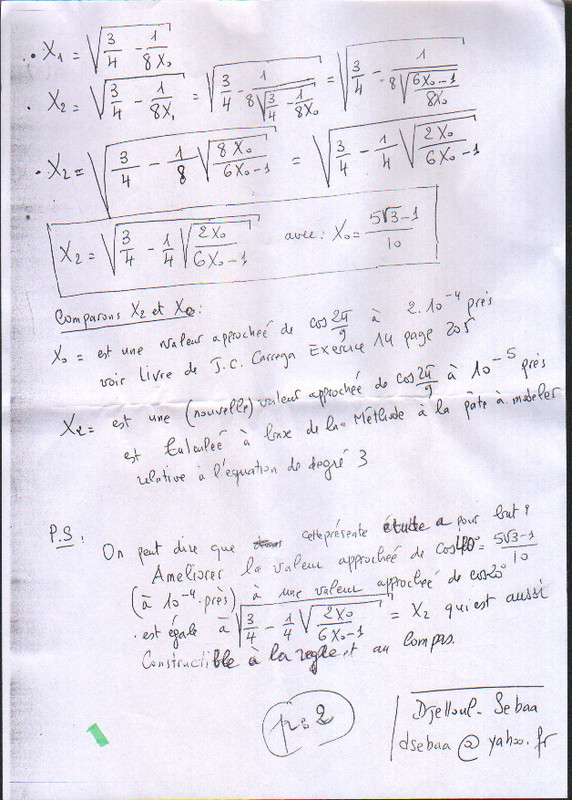 . X₁ = √(3/4 - 1/(8X₀))
. X₂ = √(3/4 - 1/(8X₁)) = √(3/4 - 1/(8√(3/4 - 1/(8X₀)))) = √(3/4 - 1/(8√((6X₀-1)/(8X₀))))
. X₂ = √(3/4 - 1/8 √(8X₀/(6X₀-1))) = √(3/4 - 1/4 √(2X₀/(6X₀-1)))
X₂ = √(3/4 - 1/4 √(2X₀/(6X₀-1))) avec: X₀ = (5√3-1)/10
Comparons X₂ et X₀:
X₀ = est une valeur approcheé de cos 2π/9 à 2.10⁻⁴ près
voir livre de J.C. Carrega Exercice 14 page 205
X₂ = est une (nouvelle) valeur approcheé de cos 2π/9 à 10⁻⁵ près
est Calculeé à base de la Méthode à la pâte à modeler
relative à l'equation de degré 3
P.S:
On peut dire que cette présente étude a pour but:
Ameliorer la valeur approcheé de Cos 40° = (5√3-1)/10
(à 10⁻⁴ près) à une valeur approcheé de cos
est égale à √(3/4 - 1/4 √(2X₀/(6X₀-1))) = X₂ qui est aussi
Constructible à la regle et au Compas.
p:2
Djelloul-Sebaa
dsebaa@yahoo.fr